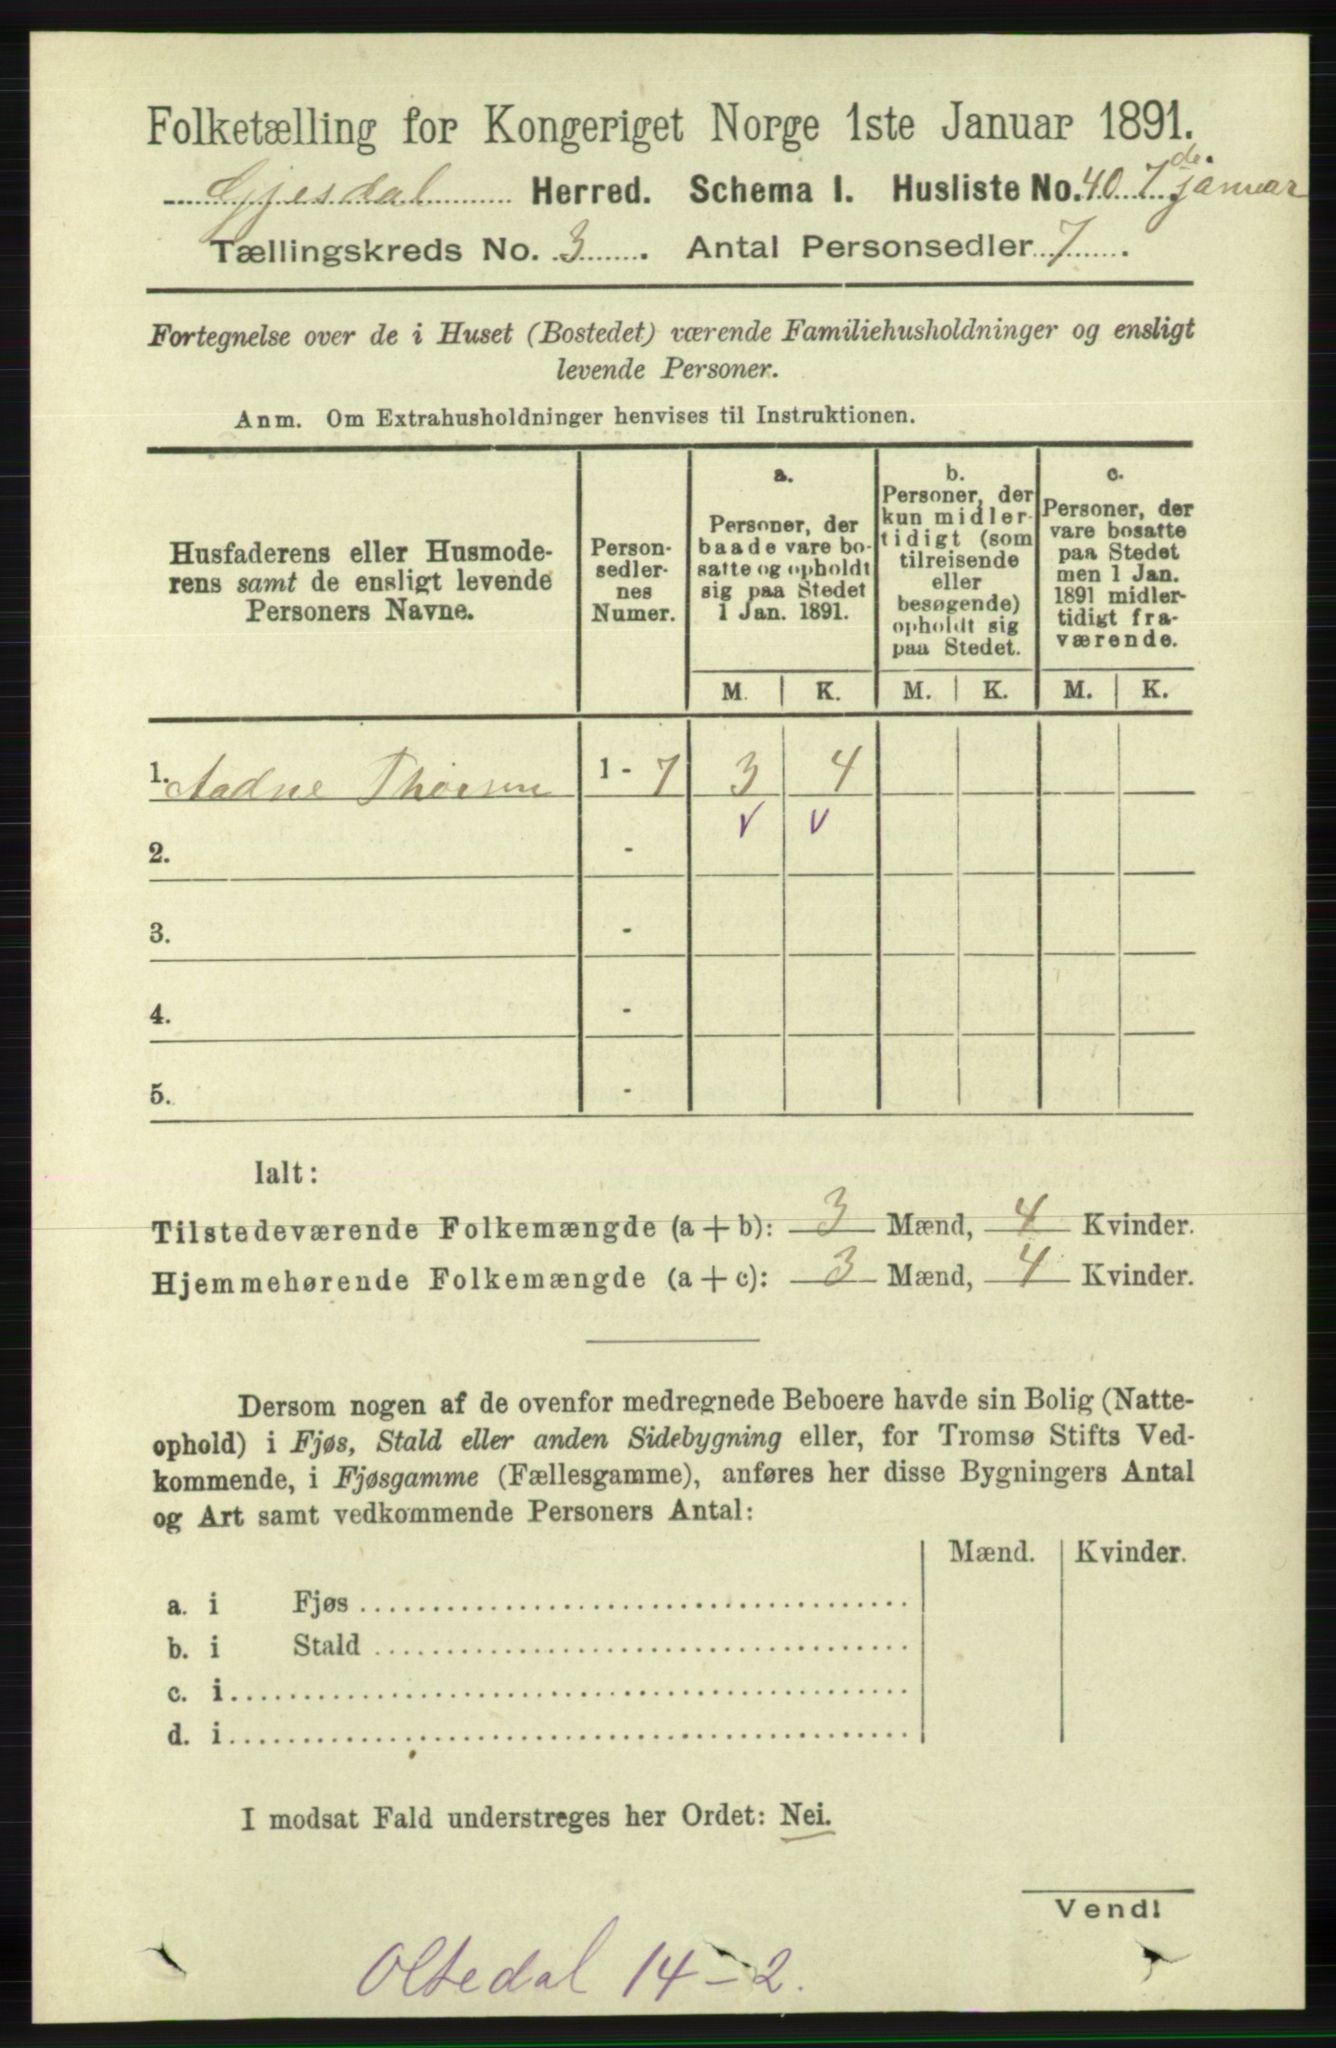 Folketælling for Kongeriget Norge 1ste Januar 1891.
Gjesdal Herred. Schema I. Husliste No. 40. 7de januar
Tællingskreds No. 3. Antal Personsedler 7.
Fortegnelse over de i Huset (Bostedet) værende Familiehusholdninger og ensligt
levende Personer.
Anm. Om Extrahusholdninger henvises til Instruktionen.
Husfaderens eller Husmode-
rens samt de ensligt levende
Personers Navne.
Person-
sedler-
nes
Numer.
a.
Personer, der
baade vare bo-
satte og opholdt
sig paa Stedet
1 Jan. 1891.
b.
Personer, der
kun midler-
tidigt (som
tilreisende
eller
besøgende)
opholdt sig
paa Stedet.
c.
Personer, der
vare bosatte
paa Stedet
men 1 Jan.
1891 midler-
tidigt fra-
værende.
M. K. M. K. M. K.
1. Aadne 1 - 7 3 4
2. -
3. -
4. -
5. -
Ialt:
Tilstedeværende Folkemængde (a + b): 3 Mænd, 4 Kvinder.
Hjemmehørende Folkemængde (a + c): 3 Mænd, 4 Kvinder.
Dersom nogen af de ovenfor medregnede Beboere havde sin Bolig (Natte-
ophold) i Fjøs, Stald eller anden Sidebygning eller, for Tromsø Stifts Ved-
kommende, i Fjøsgamme (Fællesgamme), anføres her disse Bygningers Antal
og Art samt vedkommende Personers Antal:
Mænd. Kvinder.
a. i Fjøs
b. i Stald
c. i
d. i
I modsat Fald understreges her Ordet: Nei.
Vend!
Oltedal 14-2.